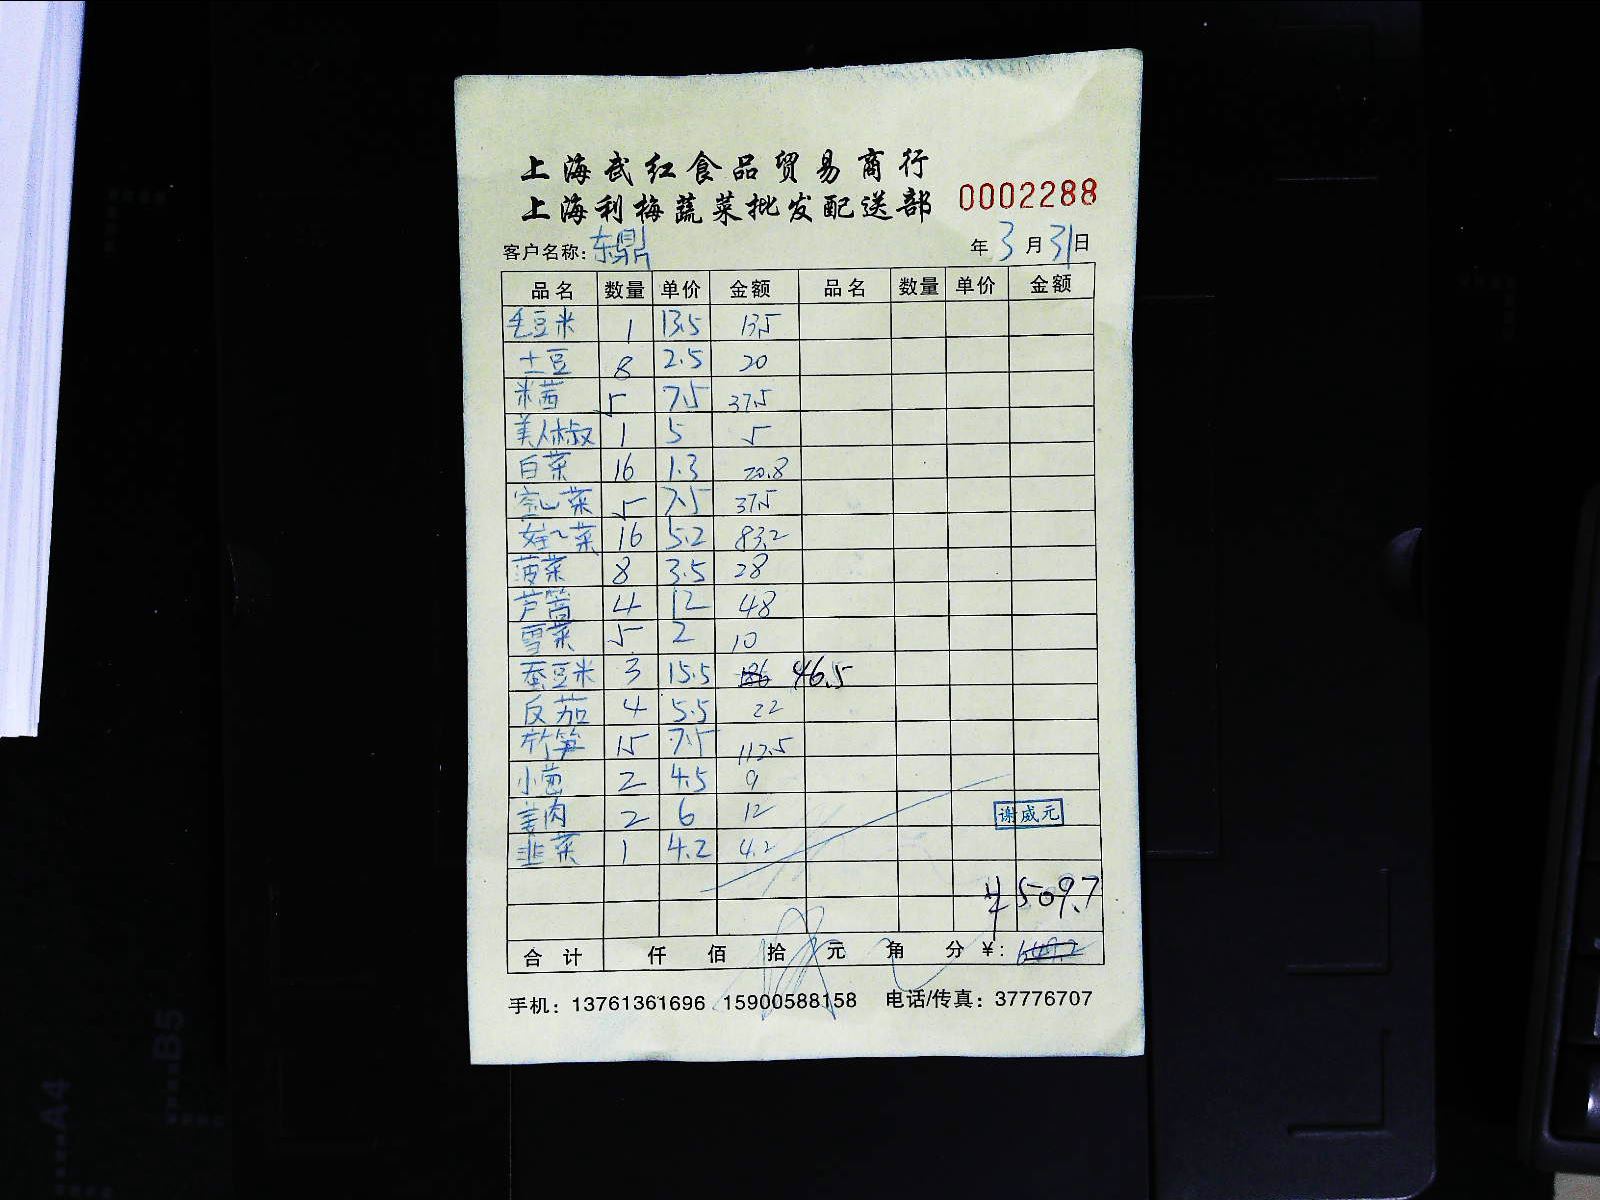 上海武红食品贸易商行
上海利梅蔬菜批发配送部 0002288
客户名称: 东鼎 年 3 月 31 日
品名 数量 单价 金额 品名 数量 单价 金额
毛豆米 1 13.5 13.5
土豆 8 2.5 20
米茜 5 7.5 37.5
美人椒 1 5 5
白菜 16 1.3 20.8
空心菜 5 7.5 37.5
娃〃菜 16 5.2 83.2
菠菜 8 3.5 28
芦筍 4 12 48
雪菜 5 2 10
蚕豆米 3 15.5 186 46.5
反茄 4 5.5 22
竹笋 15 7.5 112.5
小葱 2 4.5 9
姜肉 2 6 12
韭菜 1 4.2 4.2
谢威元
¥ 509.7
合计 仟 佰 拾 元 角 分 ¥: 649.2
手机: 13761361696 15900588158 电话/传真: 37776707
A4
B5